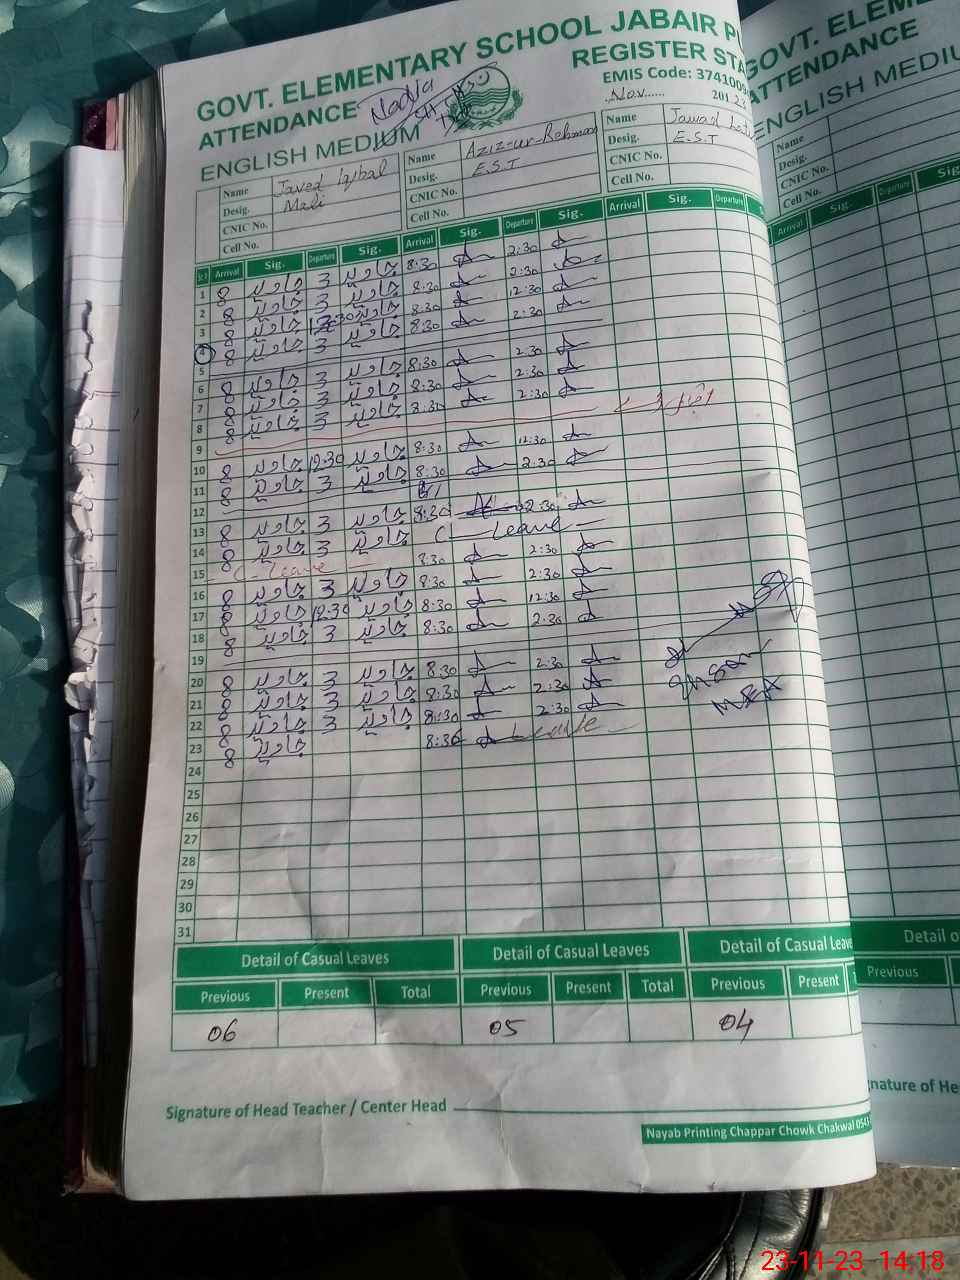 GOVT. ELEMENTARY SCHOOL JABAIR P
ATTENDANCE REGISTER STA
ENGLISH MEDIUM EMIS Code: 3741009
Nadia
Nov...... 201 23
Name Javed Iqbal Name Aziz-ur-Rehman Name Jawad
Desig. Mali Desig. E.S.T Desig. E.S.T
CNIC No. CNIC No. CNIC No.
Cell No. Cell No. Cell No.
Sr.# Arrival Sig. Departure Sig. Arrival Sig. Departure Sig. Arrival Sig. Departure
1 8 جاوید 3 جاوید 8:30 2:30
2 8 جاوید 3 جاوید 8:30 2:30
3 8 جاوید 12:30 جاوید 8:30 12:30
4 8 جاوید 3 جاوید 8:30 2:30
5
6 8 جاوید 3 جاوید 8:30 2:30
7 8 جاوید 3 جاوید 8:30 2:30
8 8 جاوید 3 جاوید 8:30 2:30
9
10 8 جاوید 12:30 جاوید 8:30 12:30
11 8 جاوید 3 جاوید 8:30 2:30
12
13 8 جاوید 3 جاوید 8:30 2:30
14 8 جاوید 3 جاوید C - Leave -
15 - C - leave - 8:30 2:30
16 8 جاوید 3 جاوید 8:30 2:30
17 8 جاوید 12:30 جاوید 8:30 12:30
18 8 جاوید 3 جاوید 8:30 2:30
19
20 8 جاوید 3 جاوید 8:30 2:30
21 8 جاوید 3 جاوید 8:30 2:30
22 8 جاوید 3 جاوید 8:30 2:30
23 8 جاوید 8:30 Leave
MEA
24
25
26
27
28
29
30
31
Detail of Casual Leaves Detail of Casual Leaves Detail of Casual Leave
Previous Present Total Previous Present Total Previous Present
06 05 04
Signature of Head Teacher / Center Head
Nayab Printing Chappar Chowk Chakwal 0543
GOVT. ELEM
ATTENDANCE
ENGLISH MEDIU
Name
Desig.
CNIC No.
Cell No.
Arrival Sig. Departure Sig.
Detail o
Previous
nature of He
23-11-23 14:18